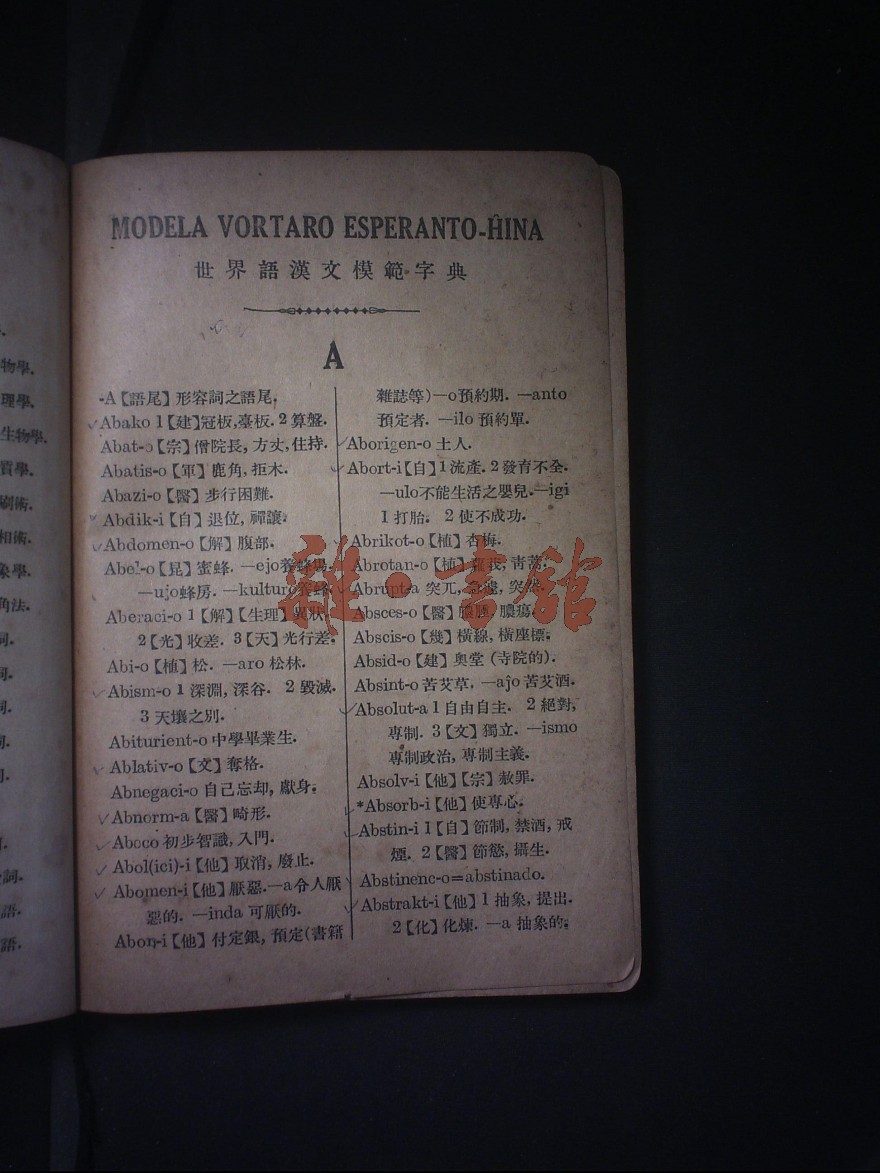 物學.
理學.
生物學.
質學.
刷術.
相術.
象學.
角法.
詞.
詞.
詞.
詞.
詞.
語.
語.
MODELA VORTARO ESPERANTO-ĤINA
世界語漢文模範字典
A
-A【語尾】形容詞之語尾.
Abako 1【建】冠板,臺板. 2 算盤.
Abat-o【宗】僧院長, 方丈, 住持.
Abatis-o【軍】鹿角, 拒木.
Abazi-o【醫】步行困難.
Abdik-i【自】退位, 禪讓.
Abdomen-o【解】腹部.
Abel-o【昆】蜜蜂. —ejo養蜂場.
—ujo蜂房. —kulturo養蜂.
Aberaci-o 1【解】【生理】異狀.
2【光】收差. 3【天】光行差.
Abi-o【植】松. —aro 松林.
Abism-o 1 深淵, 深谷. 2 毀滅.
3 天壤之別.
Abiturient-o 中學畢業生.
Ablativ-o【文】奪格.
Abnegaci-o 自己忘却, 獻身.
Abnorm-a【醫】畸形.
Aboco 初步智識, 入門.
Abol(ici)-i【他】取消, 廢止.
Abomen-i【他】厭惡.—a令人厭
惡的. —inda 可厭的.
Abon-i【他】付定銀, 預定(書籍
雜誌等)—o預約期. —anto
預定者. —ilo 預約單.
Aborigen-o 土人.
Abort-i【自】1流產. 2發育不全.
—ulo不能生活之嬰兒.—igi
1 打胎. 2 使不成功.
Abrikot-o【植】杏梅.
Abrotan-o【植】我, 靑蒿.
Abrupt-a 突兀, 突然.
Absces-o【醫】膿腫, 膿瘍.
Abscis-o【幾】橫線, 橫座標.
Absid-o【建】奧堂 (寺院的).
Absint-o 苦艾草. —aĵo 苦艾酒.
Absolut-a 1 自由自主. 2 絕對,
專制. 3【文】獨立. —ismo
專制政治, 專制主義.
Absolv-i【他】【宗】赦罪.
*Absorb-i【他】使專心.
Abstin-i 1【自】節制, 禁酒, 戒
煙. 2【醫】節慾, 攝生.
Abstinenc-o=abstinado.
Abstrakt-i【他】1 抽象, 提出.
2【化】化煉. —a 抽象的.
雜·書舘